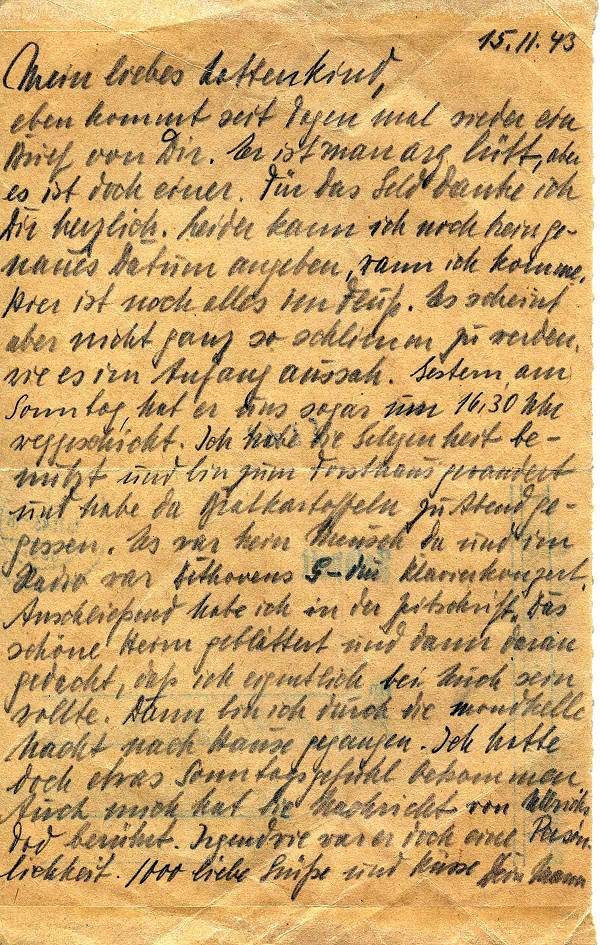 15.11.43
Mein liebes Lottenkind,
eben kommt seit Tagen mal wieder ein
Brief von Dir. Er ist man arg lütt, aber
es ist doch einer. Für das Geld danke ich
Dir herzlich. Leider kann ich noch kein ge-
naues Datum angeben, wann ich komme.
Hier ist noch alles im Fluß. Es scheint
aber nicht ganz so schlimm zu werden,
wie es im Anfang aussah. Gestern, am
Sonntag, hat er uns sogar um 16,30 Uhr
weggeschickt. Ich habe die Gelegenheit be-
nutzt und bin zum Forsthaus gewandert
und habe da Bratkartoffeln zu Abend ge-
gessen. Es war kein Mensch da und im
Radio war Bethovens G-dur Klavierkonzert.
Anschließend habe ich in der Zeitschrift „Das
schöne Heim geblättert und dann daran
gedacht, daß ich eigentlich bei Euch sein
wollte. Dann bin ich durch die mondhelle
Nacht nach Hause gegangen. Ich hatte
doch etwas Sonntagsgefühl bekommen.
Auch mich hat die Nachricht von
Tod berührt. Irgendwie war er doch eine Persön-
lichkeit. 1000 liebe Grüße und Küsse Dein Mann